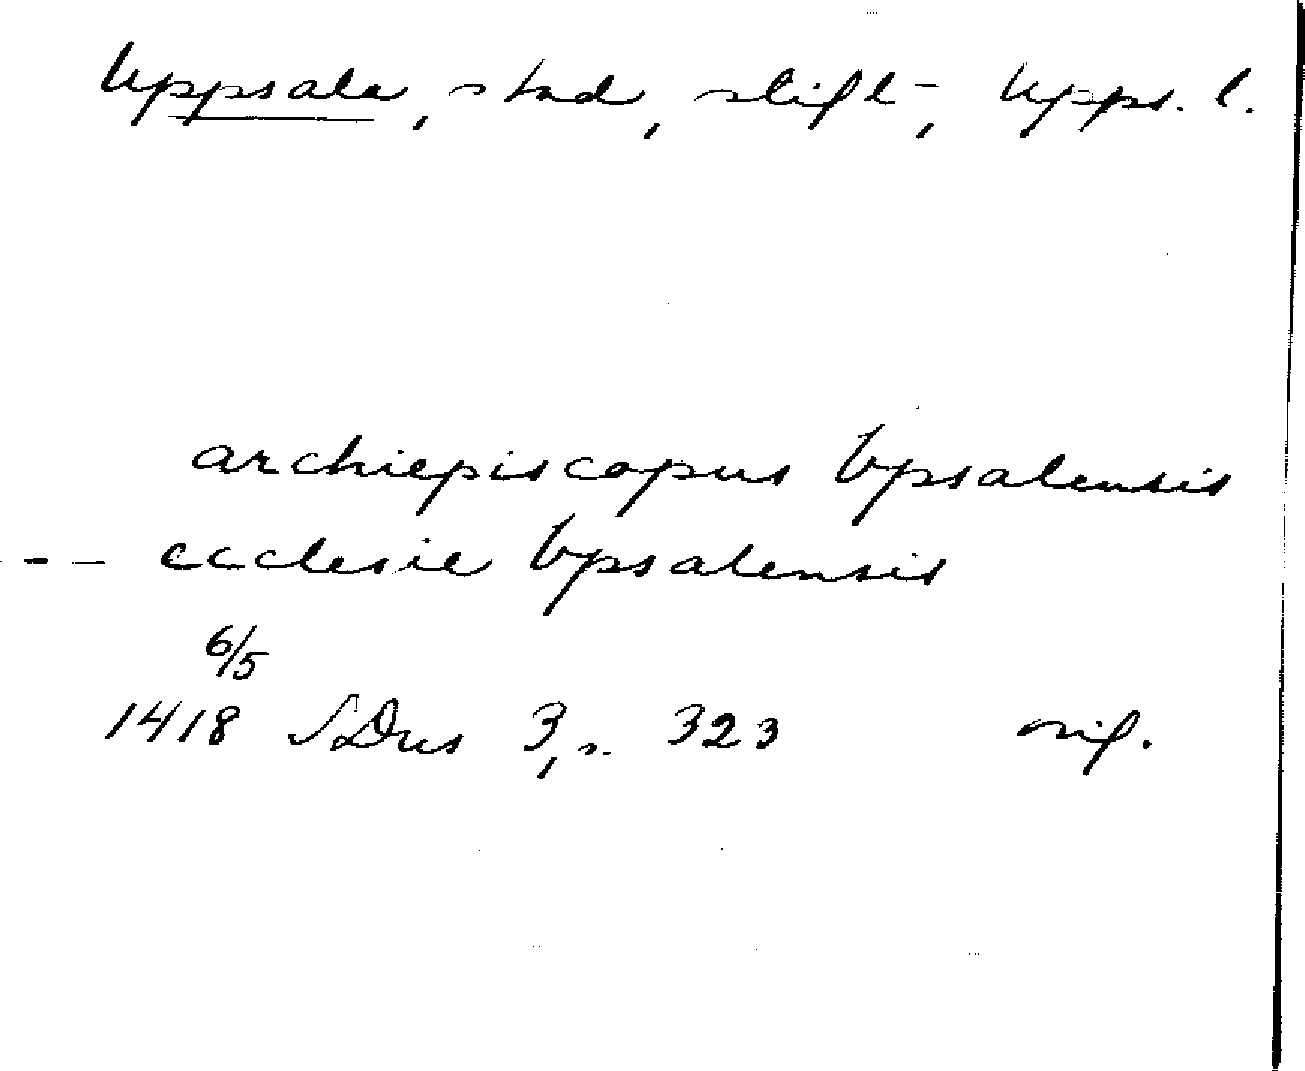 Uppsala, stad, stift, Upps. l.
archiepiscopus Vpsalensis
-- ecclesie Vpsalensis
6/5
1418 SDns 3, s. 323 orig.